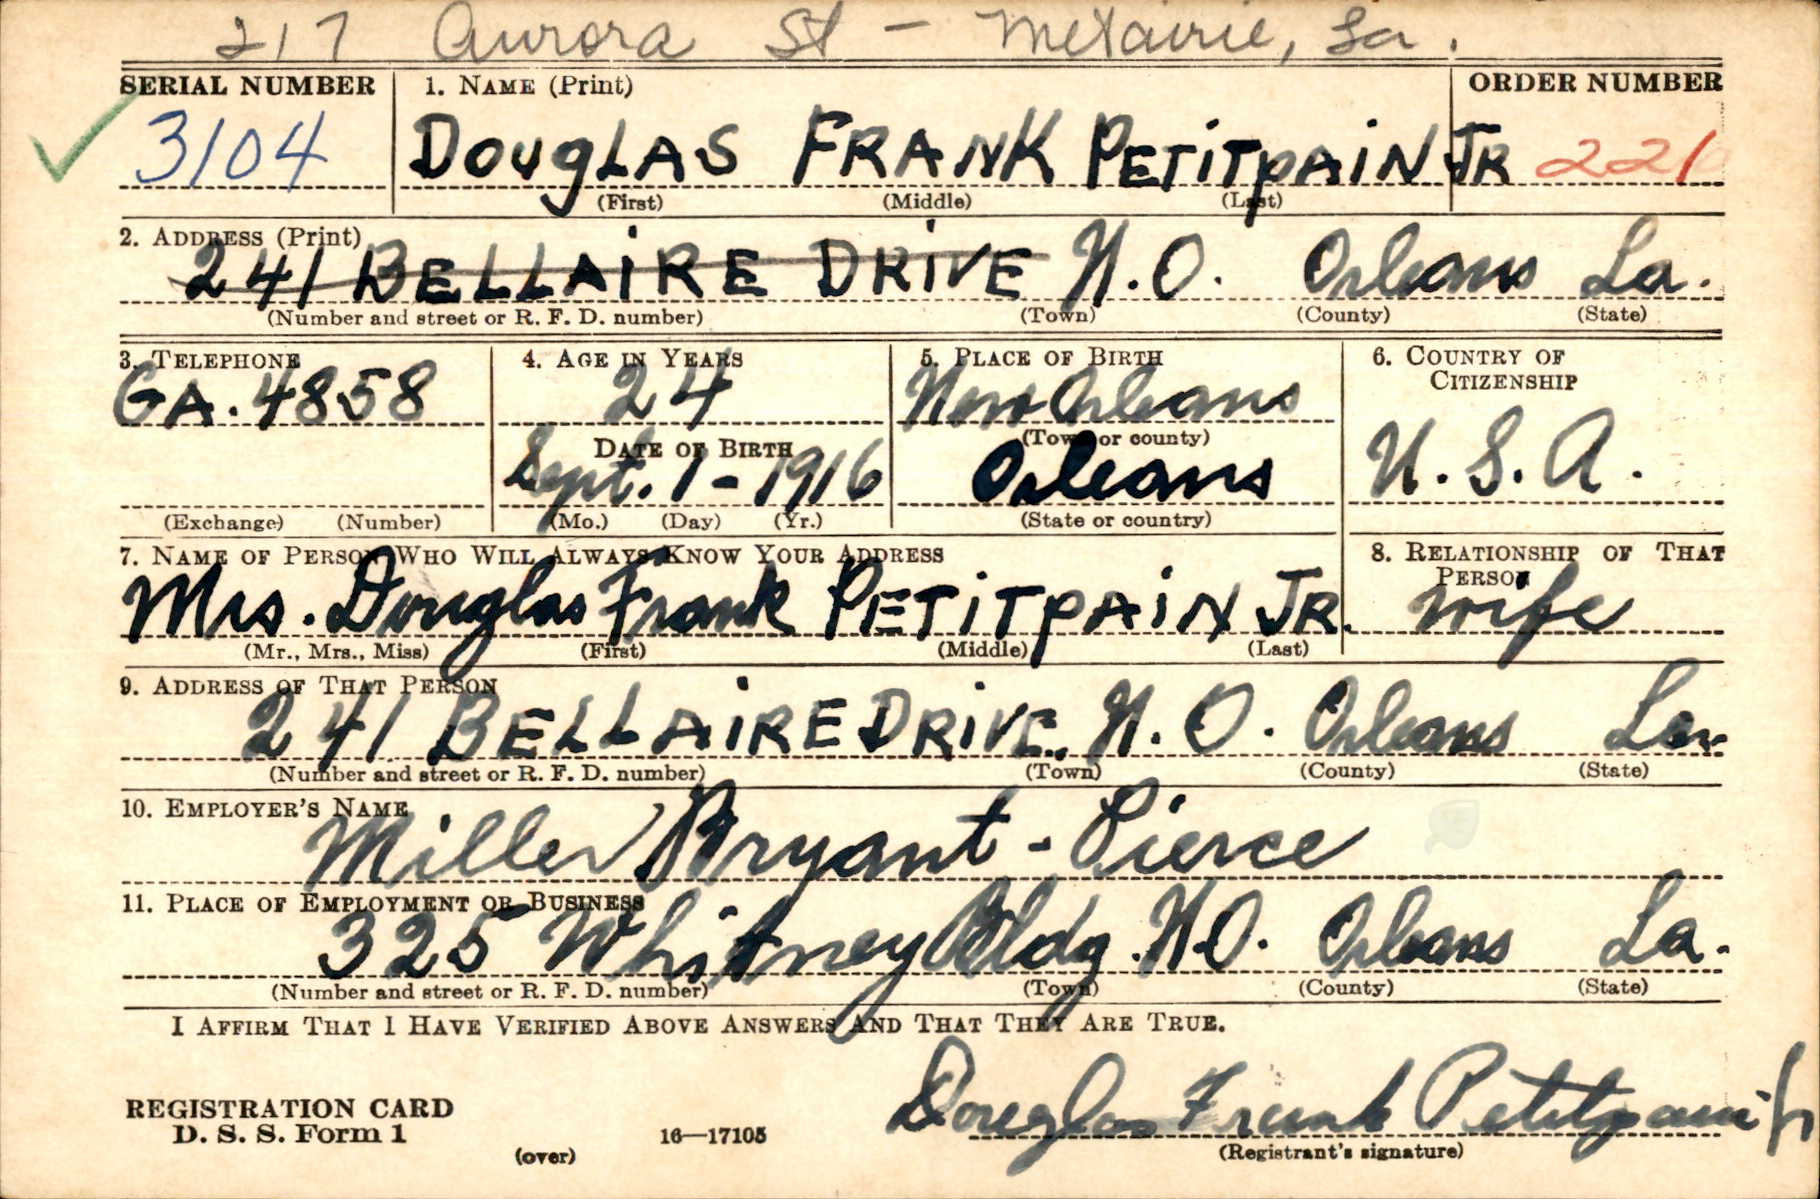 217 Aurora St - Metairie, La.
SERIAL NUMBER 1. NAME (Print) ORDER NUMBER
3104 DOUGLAS FRANK PETITPAIN JR 221
(First) (Middle) (Last)
2. ADDRESS (Print)
241 BELLAIRE DRIVE N.O. Orleans La.
(Number and street or R. F. D. number) (Town) (County) (State)
3. TELEPHONE 4. AGE IN YEARS 5. PLACE OF BIRTH 6. COUNTRY OF CITIZENSHIP
GA. 4858 24 New Orleans
DATE OF BIRTH (Town or county)
Sept. 1 - 1916 Orleans U. S. A.
(Exchange) (Number) (Mo.) (Day) (Yr.) (State or country)
7. NAME OF PERSON WHO WILL ALWAYS KNOW YOUR ADDRESS 8. RELATIONSHIP OF THAT PERSON
Mrs. Douglas Frank PETITPAIN JR. Wife
(Mr., Mrs., Miss) (First) (Middle) (Last)
9. ADDRESS OF THAT PERSON
241 BELLAIRE DRIVE. N. O. Orleans La.
(Number and street or R. F. D. number) (Town) (County) (State)
10. EMPLOYER'S NAME
Miller Bryant - Pierce
11. PLACE OF EMPLOYMENT OR BUSINESS
325 Whitney Bldg. N.O. Orleans La.
(Number and street or R. F. D. number) (Town) (County) (State)
I AFFIRM THAT I HAVE VERIFIED ABOVE ANSWERS AND THAT THEY ARE TRUE.
Douglas Frank Petitpain Jr
REGISTRATION CARD
D. S. S. Form 1 16—17105
(over) (Registrant's signature)